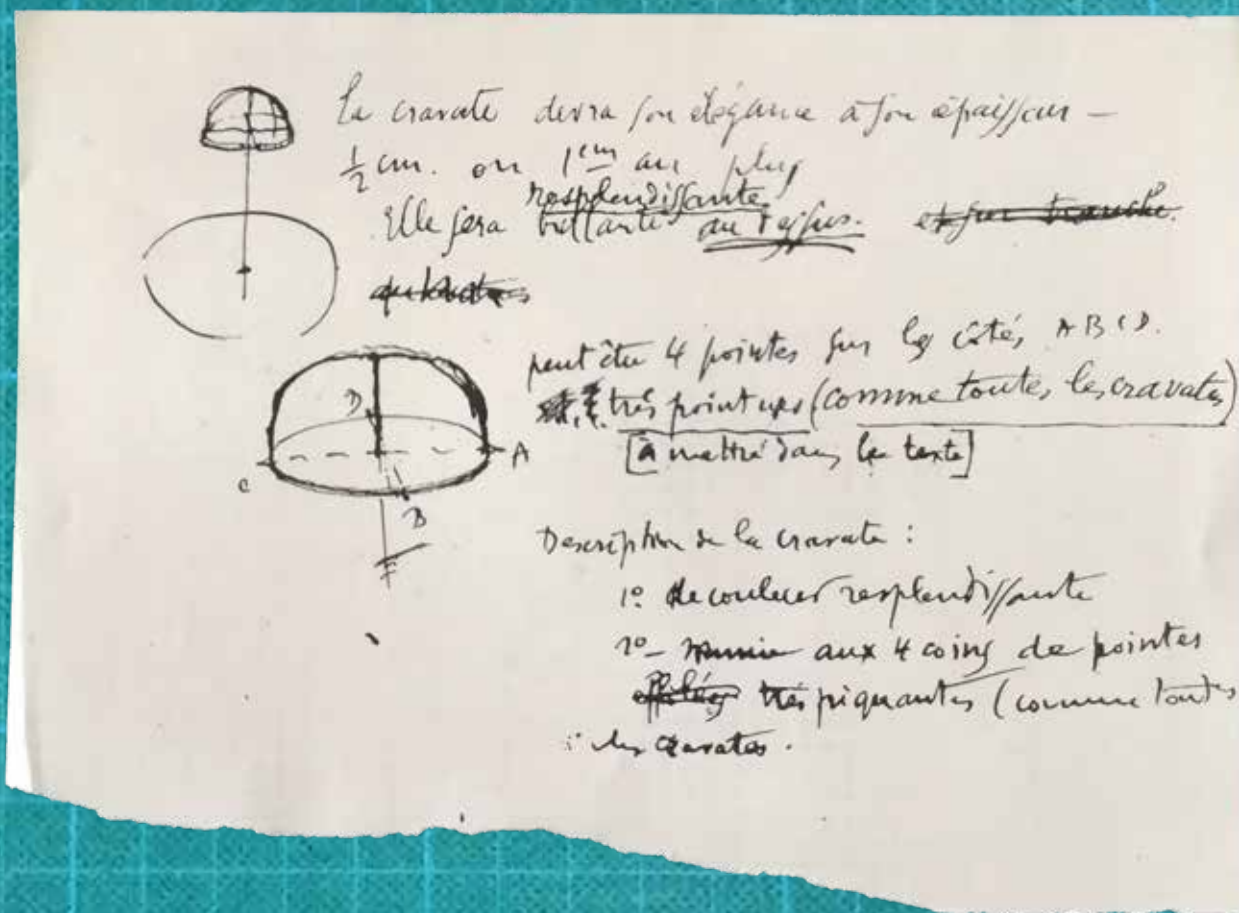 La cravate devra son élégance à son épaisseur –
½ cm. ou 1cm au plus
resplendissante
Elle sera brillante au dessus. et sur tranche.
peut être 4 pointes sur les côtés A B C D.
très pointues (comme toutes les cravates)
[à mettre dans le texte]
D
A
C
B
Description de la cravate :
1º de couleur resplendissante
2º – munie aux 4 coins de pointes
effilées très piquantes (comme toutes
les cravates.